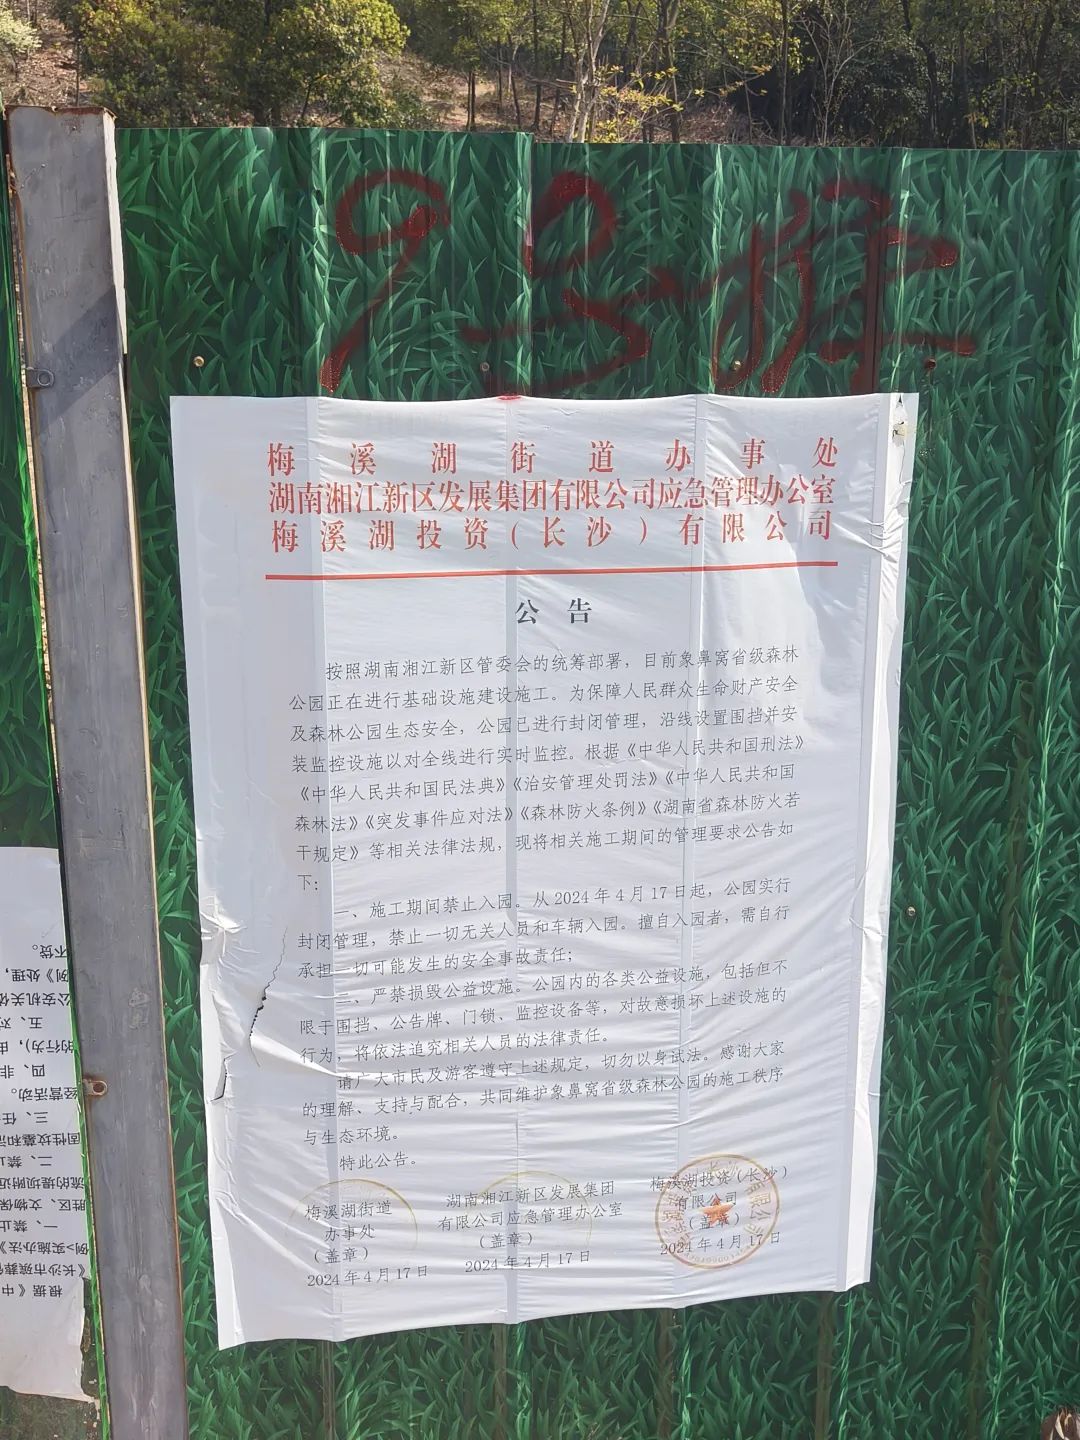 9号
梅溪湖街道办事处
湖南湘江新区发展集团有限公司应急管理办公室
梅溪湖投资(长沙)有限公司
公告
按照湖南湘江新区管委会的统筹部署，目前象鼻窝省级森林
公园正在进行基础设施建设施工。为保障人民群众生命财产安全
及森林公园生态安全，公园已进行封闭管理，沿线设置围挡并安
装监控设施以对全线进行实时监控。根据《中华人民共和国刑法》
《中华人民共和国民法典》《治安管理处罚法》《中华人民共和国
森林法》《突发事件应对法》《森林防火条例》《湖南省森林防火若
干规定》等相关法律法规，现将相关施工期间的管理要求公告如
下：
一、施工期间禁止入园。从2024年4月17日起，公园实行
封闭管理，禁止一切无关人员和车辆入园。擅自入园者，需自行
承担一切可能发生的安全事故责任；
二、严禁损毁公益设施。公园内的各类公益设施，包括但不
限于围挡、公告牌、门锁、监控设备等，对故意损坏上述设施的
行为，将依法追究相关人员的法律责任。
请广大市民及游客遵守上述规定，切勿以身试法。感谢大家
的理解、支持与配合，共同维护象鼻窝省级森林公园的施工秩序
与生态环境。
特此公告。
梅溪湖街道
办事处
（盖章）
2024年4月17日
湖南湘江新区发展集团
有限公司应急管理办公室
（盖章）
2024年4月17日
梅溪湖投资（长沙）
有限公司
（盖章）
2024年4月17日
根据《中
《长沙市殡葬
例>实施办法》
一、禁止
胜区、文物保
流的堤坝附近
二、禁止
固性坟墓和
三、任
经营活动。
四、非
的行为)，由
五、对
公安机关依
例》处理，
不贷。